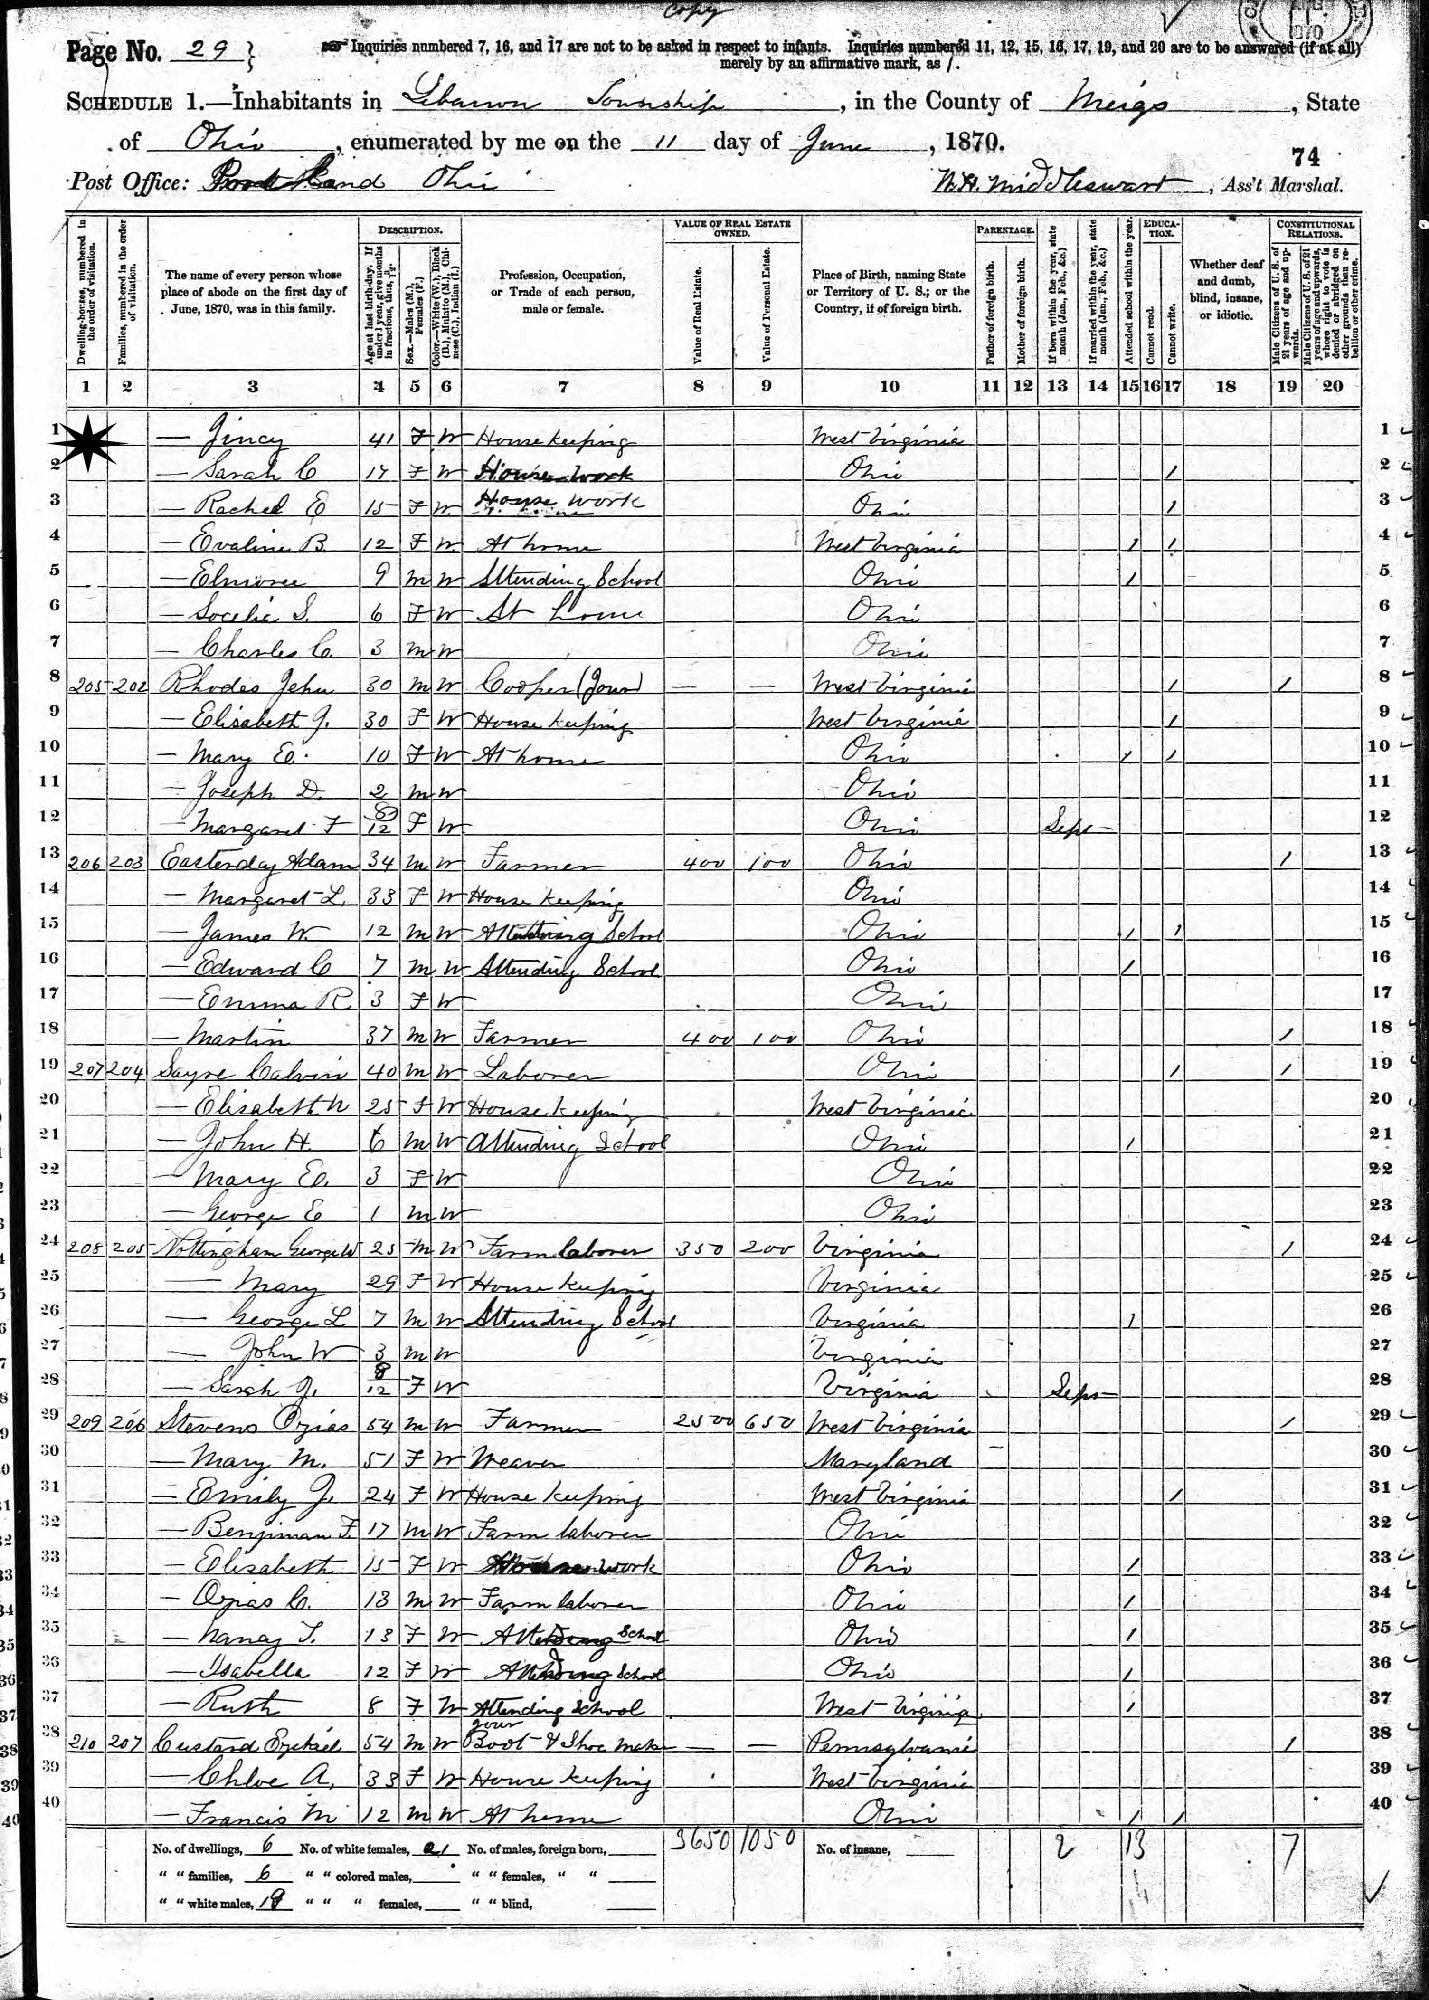 copy
Page No. 29 } Inquiries numbered 7, 16, and 17 are not to be asked in respect to infants. Inquiries numbered 11, 12, 15, 16, 17, 19, and 20 are to be answered (if at all)
merely by an affirmative mark, as /.
SCHEDULE 1.—Inhabitants in Lebanon Township, in the County of Meigs, State
of Ohio, enumerated by me on the 11 day of June, 1870.
74
Post Office: Portland Ohio N. H. Middleswart, Ass't Marshal.
Dwelling-houses, numbered in the order of visitation.
Families, numbered in the order of visitation.
The name of every person whose place of abode on the first day of June, 1870, was in this family.
DESCRIPTION.
Age at last birth-day. If under 1 year, give months in fractions, thus, 3/12.
Sex.—Males (M.), Females (F.)
Color.—White (W.), Black (B.), Mulatto (M.), Chinese (C.), Indian (I.)
Profession, Occupation, or Trade of each person, male or female.
VALUE OF REAL ESTATE OWNED.
Value of Real Estate.
Value of Personal Estate.
Place of Birth, naming State or Territory of U. S.; or the Country, if of foreign birth.
PARENTAGE.
Father of foreign birth.
Mother of foreign birth.
If born within the year, state month (Jan., Feb., &c.)
If married within the year, state month (Jan., Feb., &c.)
Attended school within the year.
EDUCATION.
Cannot read.
Cannot write.
Whether deaf and dumb, blind, insane, or idiotic.
CONSTITUTIONAL RELATIONS.
Male Citizens of U. S. of 21 years of age and upwards.
Male Citizens of U. S. of 21 years of age and upwards, whose right to vote is denied or abridged on other grounds than rebellion or other crime.
1 2 3 4 5 6 7 8 9 10 11 12 13 14 15 16 17 18 19 20
1 — Jincy 41 F W Housekeeping West Virginia 1
2 — Sarah C 17 F W House work Ohio / 2
3 — Rachel E 15 F W House work Ohio / 3
4 — Evaline B. 12 F W At home West Virginia / / 4
5 — Elmore 9 M W Attending School Ohio / 5
6 — S. 6 F W At home Ohio 6
7 — Charles C. 3 M W Ohio 7
8 205 202 Rhodes Jehu 30 M W Cooper (Jour) — — West Virginia / / 8
9 — Elisabeth J. 30 F W House keeping West Virginia / 9
10 — Mary E. 10 F W At home Ohio / / 10
11 — Joseph D. 2 M W Ohio 11
12 — Margaret F 8/12 F W Ohio Sept 12
13 206 203 Easterday Adam 34 M W Farmer 400 100 Ohio / 13
14 — Margaret L. 33 F W House keeping Ohio 14
15 — James W. 12 M W Attending School Ohio / / 15
16 — Edward C 7 M W Attending School Ohio / 16
17 — Emma R. 3 F W Ohio 17
18 — Martin 37 M W Farmer 400 100 Ohio / 18
19 207 204 Sayre Calvin 40 M W Laborer Ohio / / 19
20 — Elisabeth N 25 F W House keeping West Virginia 20
21 — John H. 6 M W Attending School Ohio / 21
22 — Mary E. 3 F W Ohio 22
23 — George E 1 M W Ohio 23
24 208 205 Nottingham George W 25 M W Farm laborer 350 200 Virginia / 24
25 — Mary 29 F W House keeping Virginia 25
26 — George L 7 M W Attending School Virginia / 26
27 — John W 3 M W Virginia 27
28 — Sarah J. 8/12 F W Virginia Sept 28
29 209 206 Stevens Ozias 54 M W Farmer 2500 650 West Virginia / 29
30 — Mary M. 51 F W Weaver Maryland 30
31 — Emily J. 24 F W House keeping West Virginia / 31
32 — Benjiman F. 17 M W Farm laborer Ohio 32
33 — Elisabeth 15 F W House work Ohio / 33
34 — Ozias C. 13 M W Farm laborer Ohio / 34
35 — Nancy T. 13 F W Attending School Ohio / 35
36 — Isabella 12 F W Attending School Ohio / 36
37 — Ruth 8 F W Attending School West Virginia / 37
38 210 207 Custard Ezekiel 54 M W jour Boot & Shoe Maker — — Pennsylvania / 38
39 — Chloe A. 33 F W House keeping West Virginia 39
40 — Francis M 12 M W At home Ohio / / 40
No. of dwellings, 6 No. of white females, 21 No. of males, foreign born, 3650 1050 No. of insane, 2 13 7
" " families, 6 " " colored males, " " females, " "
" " white males, 19 " " " females, " " blind,